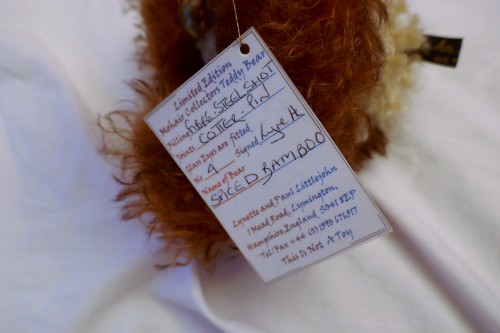 Limited Edition
Mohair Collectors Teddy Bear
Filling STEEL SHOT
Joints COTTER-PIN
Glass Eyes are fitted
No 4 Signed
Name of Bear
SPICED BAMBOO
Lynette and Paul Littlejohn
1 Mead Road, Lymington,
Hampshire, England,
Tel/Fax +44 (0)1590 676817
This Is Not A Toy